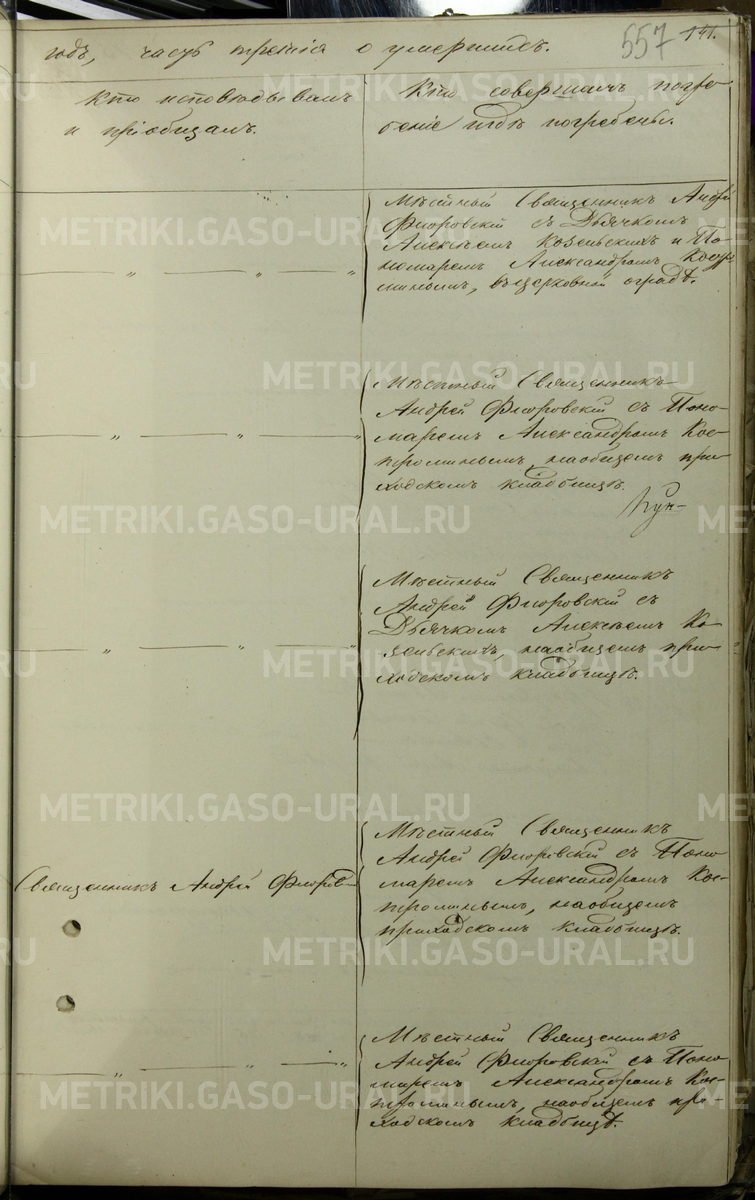 557 141.
годъ, часть третія о умершихъ.
Кто исповѣдывалъ
и пріобщалъ.
Кто совершалъ погре-
беніе и гдѣ погребены.
Мѣстный Священникъ Андрей
Флоровскій съ Дьячкомъ
Алексѣемъ и По-
номаремъ Александромъ
въ церковной оградѣ.
Мѣстный Священникъ
Андрей Флоровскій съ Поно-
маремъ Александромъ Кос-
троминымъ, на общемъ при-
ходскомъ кладбищѣ.
Мѣстный Священникъ
Андрей Флоровскій съ
Дьячкомъ Алексѣемъ
на общемъ при-
ходскомъ кладбищѣ.
Священникъ Андрей Флоров-
Мѣстный Священникъ
Андрей Флоровскій съ Поно-
маремъ Александромъ Кос-
троминымъ, на общемъ
приходскомъ кладбищѣ.
Мѣстный Священникъ
Андрей Флоровскій съ Поно-
маремъ Александромъ Кос-
троминымъ, на общемъ при-
ходскомъ кладбищѣ.
METRIKI.GASO-URAL.RU